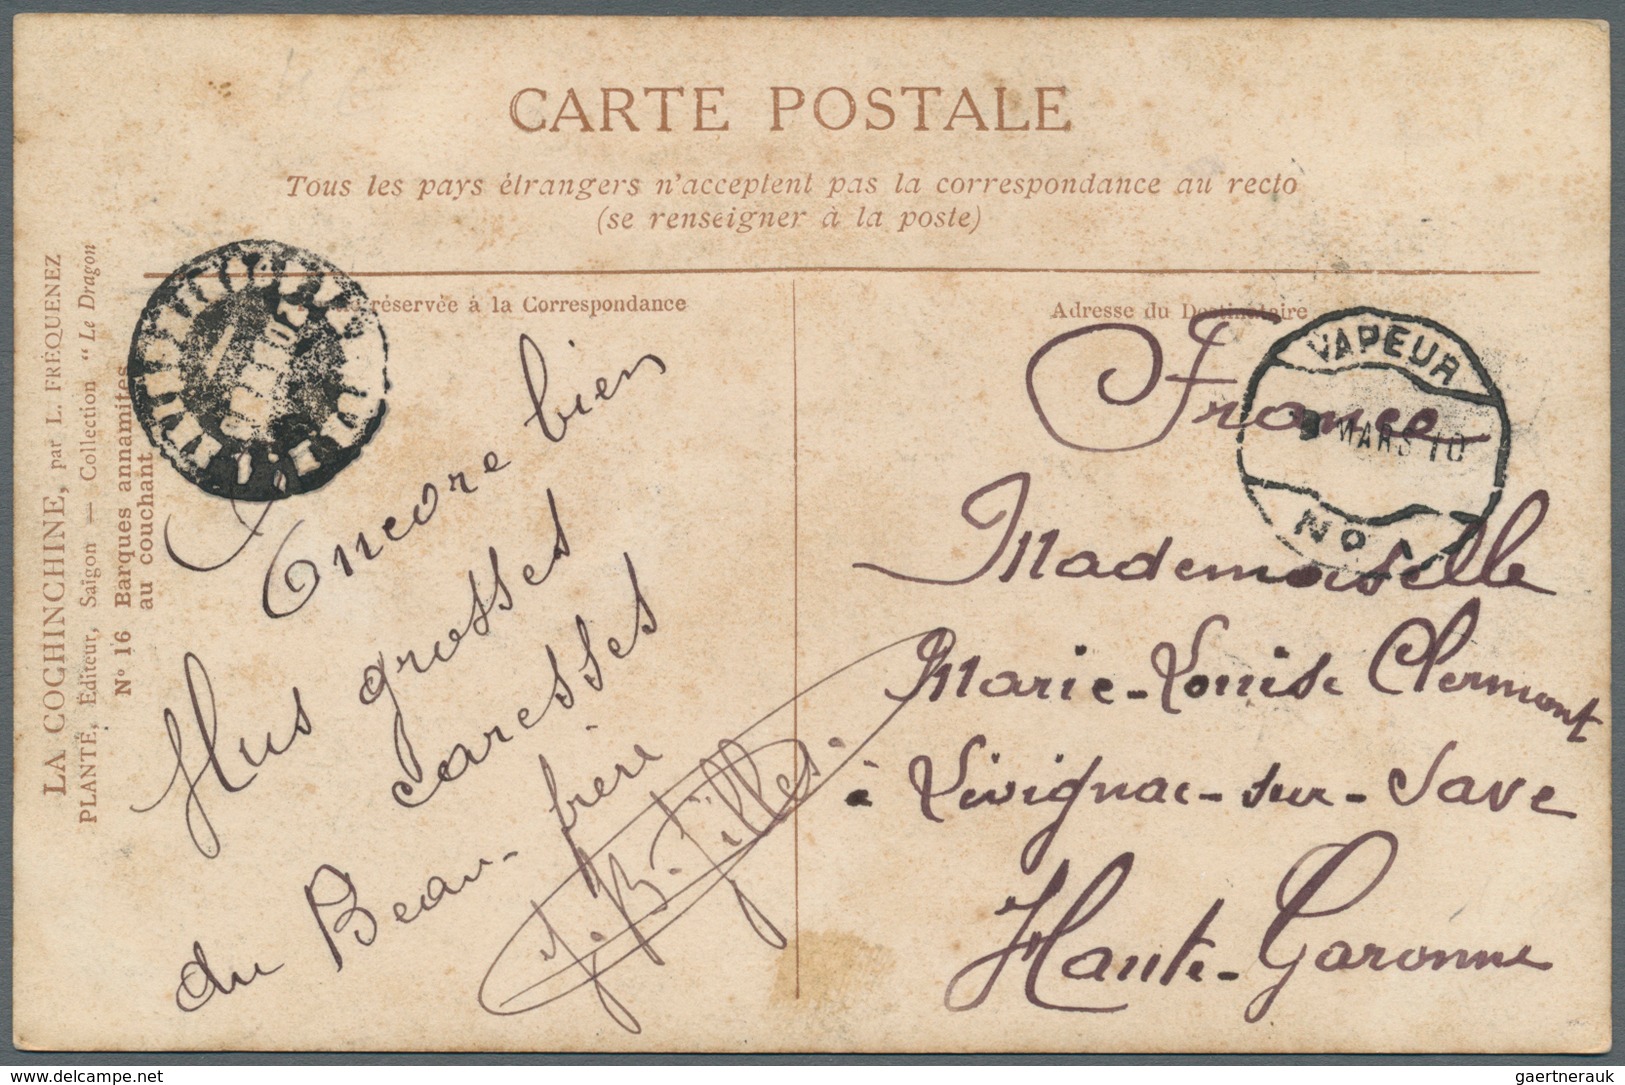 CARTE POSTALE
Tous les pays étrangers n'acceptent pas la correspondance au recto
(se renseigner à la poste)
LA COCHINCHINE, par L. FRÉQUENEZ
PLANTÉ, Éditeur, Saigon — Collection "Le Dragon
Nº 16 Barques annamites
au couchant
réservée à la Correspondance
Encore bien
plus grosses
caresses
du Beau-frère
Adresse du Destinataire
VAPEUR
MARS 10
No 1
France
Mademoiselle
Marie-Louise Clermont
à Lévignac-sur-Save
Haute-Garonne
gaertnerauk @ delcampe.net